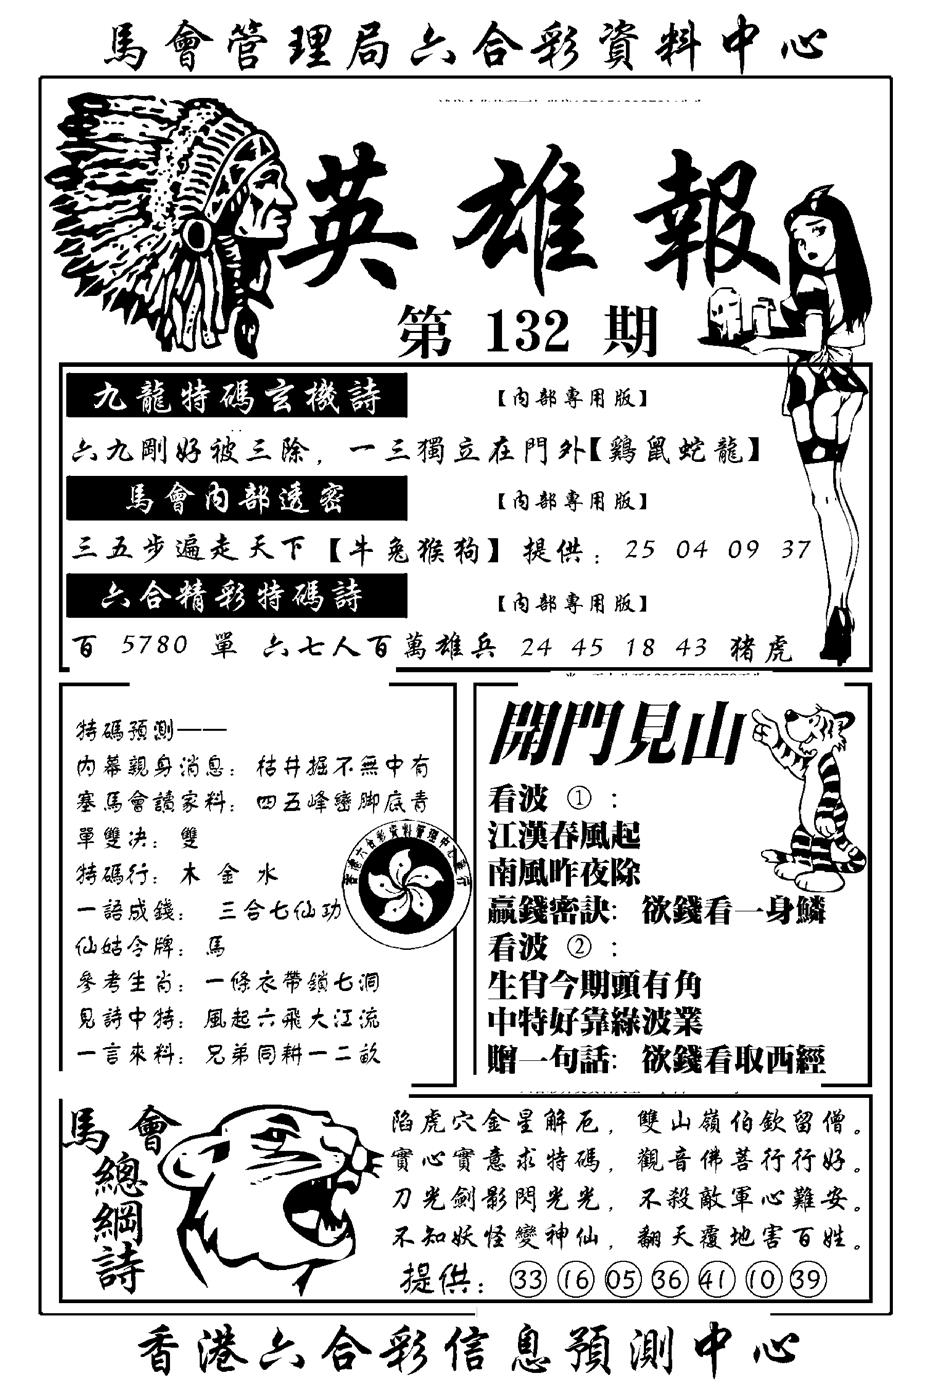 馬會管理局六合彩資料中心
英雄報
第 132 期
九龍特碼玄機詩 【內部專用版】
六九剛好被三除，一三獨立在門外【鷄鼠蛇龍】
馬會內部透密 【內部專用版】
三五步遍走天下【牛兔猴狗】 提供：25 04 09 37
六合精彩特碼詩 【內部專用版】
百 5780 單 六七人百萬雄兵 24 45 18 43 猪虎
特碼預測——
內幕親身消息：枯井掘不無中有
塞馬會讀家料：四五峰巒脚底青
單雙决：雙
特碼行：木 金 水
一語成錢： 三合七仙功
仙姑令牌：馬
參考生肖：一條衣帶鎖七洞
見詩中特：風起六飛大江流
一言來料：兄弟同耕一二畝
開門見山
看波 ①：
江漢春風起
南風昨夜除
贏錢密訣：欲錢看一身鱗
看波 ②：
生肖今期頭有角
中特好靠綠波業
贈一句話：欲錢看取西經
馬會
總綱詩
陷虎穴金星解厄，雙山嶺伯欽留僧。
實心實意求特碼，觀音佛菩行行好。
刀光劍影閃光光，不殺敵軍心難安。
不知妖怪變神仙，翻天覆地害百姓。
提供：㉝ ⑯ 05 ㊱ ㊶ ⑩ ㊴
香港六合彩信息預測中心